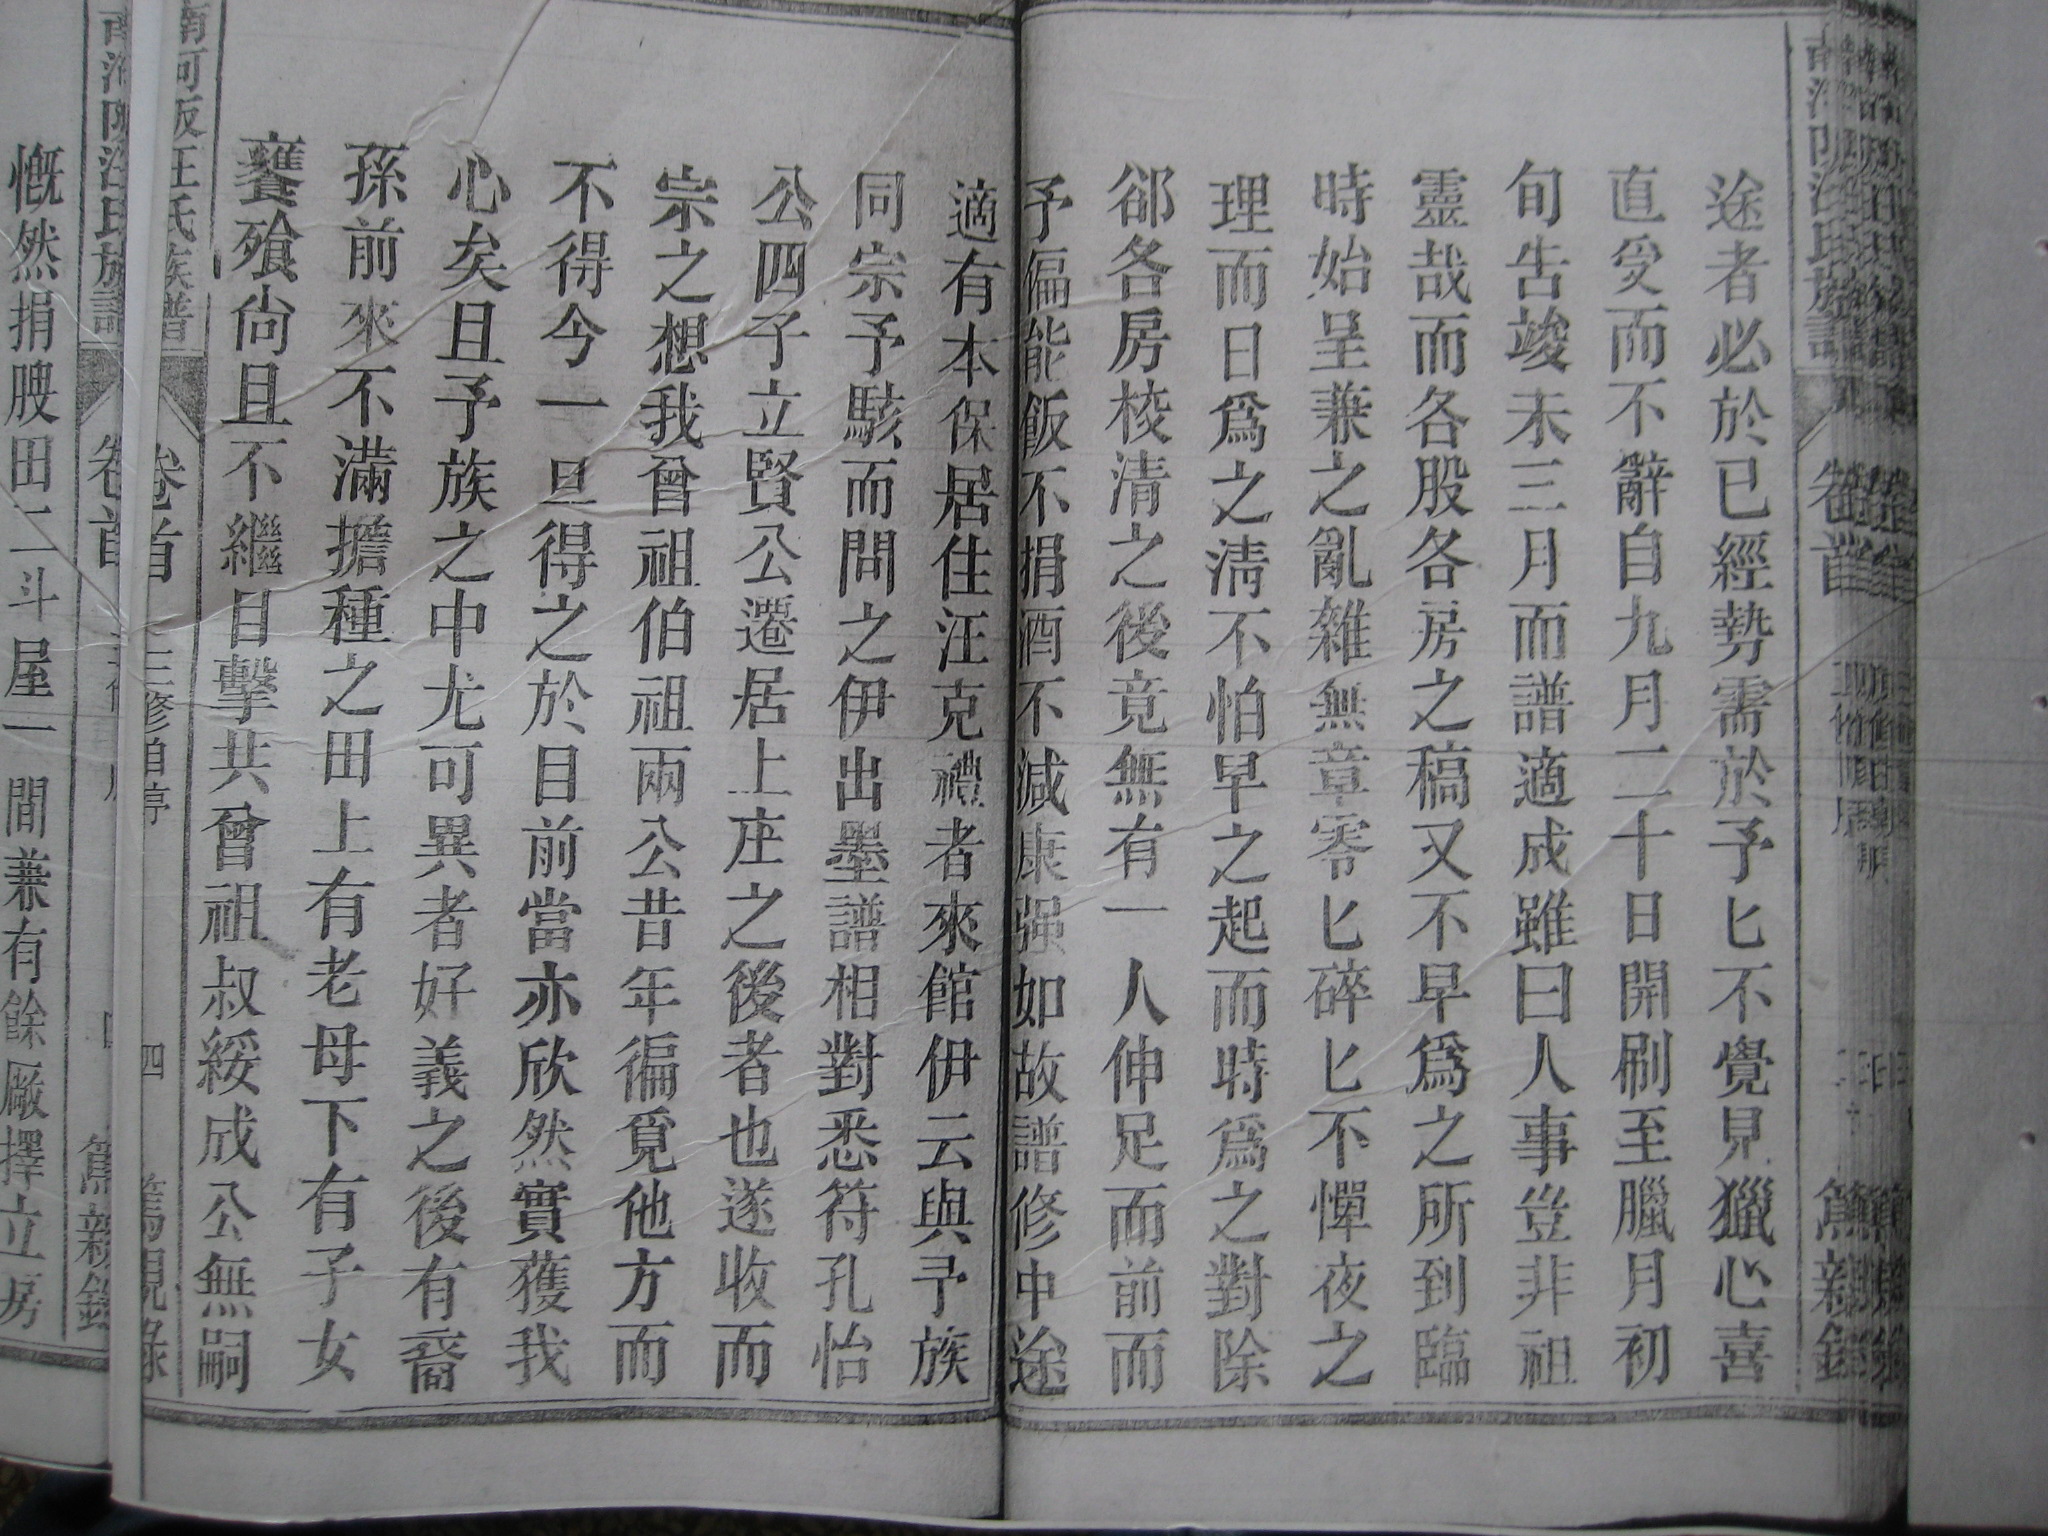 途者必於已經勢需於予匕不覺見獵心喜
直受而不辭自九月二十日開刷至臘月初
旬告竣未三月而譜適成雖曰人事豈非祖
靈哉而各股各房之稿又不早爲之所到臨
時始呈兼之亂雜無章零匕碎匕不憚夜之
理而日爲之淸不怕早之起而時爲之對除
郤各房校清之後竟無有一人伸足而前而
予偏能飯不捐酒不減康强如故譜修中途
適有本保居住汪克禮者來館伊云與予族
同宗予駭而問之伊出墨譜相對悉符孔怡
公四子立賢公遷居上庄之後者也遂收而
宗之想我曾祖伯祖兩公昔年徧覓他方而
不得今一旦得之於目前當亦欣然實獲我
心矣且予族之中尤可異者好義之後有裔
孫前來不滿擔種之田上有老母下有子女
饔飱尙且不繼目擊共曾祖叔綏成公無嗣
南河阪汪氏族譜 卷首 三修自序 四
慨然捐腴田二斗屋一間兼有餘厰擇立房